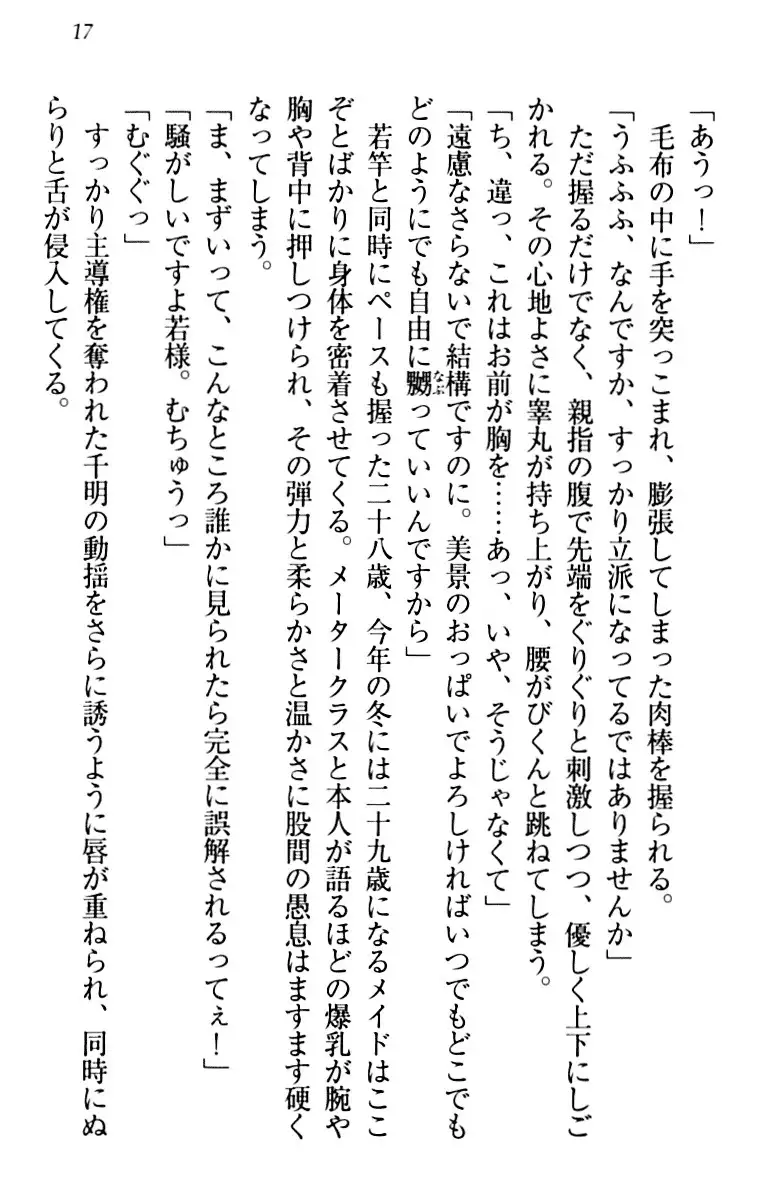 17
「あうっ！」
毛布の中に手を突っこまれ、膨張してしまった肉棒を握られる。
「うふふふ、なんですか、すっかり立派になってるではありませんか」
ただ握るだけでなく、親指の腹で先端をぐりぐりと刺激しつつ、優しく上下にしご
かれる。その心地よさに睾丸が持ち上がり、腰がびくんと跳ねてしまう。
「ち、違っ、これはお前が胸を……あっ、いや、そうじゃなくて」
「遠慮なさらないで結構ですのに。美景のおっぱいでよろしければいつでもどこでも
どのようにでも自由に嬲っていいんですから」
なぶ
若竿と同時にペースも握った二十八歳、今年の冬には二十九歳になるメイドはここ
ぞとばかりに身体を密着させてくる。メータークラスと本人が語るほどの爆乳が腕や
胸や背中に押しつけられ、その弾力と柔らかさと温かさに股間の愚息はますます硬く
なってしまう。
「ま、まずいって、こんなところ誰かに見られたら完全に誤解されるってぇ！」
「騒がしいですよ若様。むちゅうっ」
「むぐぐっ」
すっかり主導権を奪われた千明の動揺をさらに誘うように唇が重ねられ、同時にぬ
らりと舌が侵入してくる。